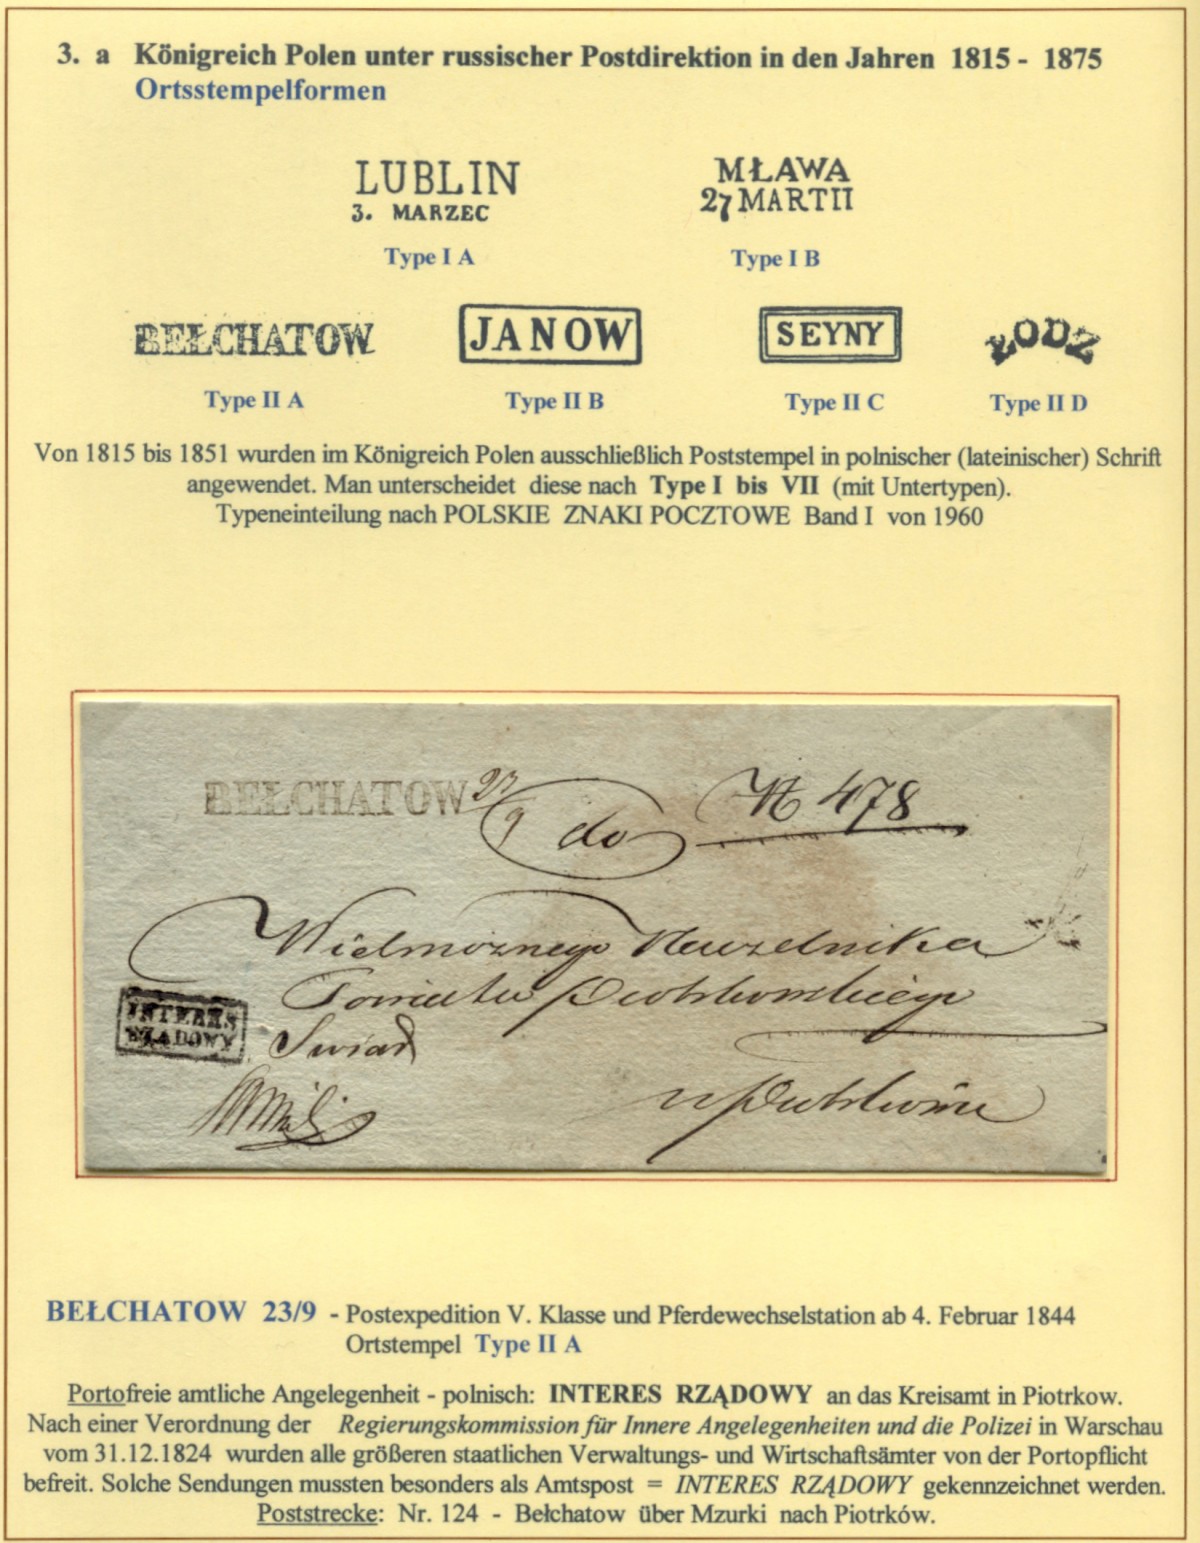 3. a Königreich Polen unter russischer Postdirektion in den Jahren 1815 - 1875
Ortsstempelformen
LUBLIN
3. MARZEC
Type I A
MŁAWA
27 MARTII
Type I B
BEŁCHATOW
Type II A
JANOW
Type II B
SEYNY
Type II C
ŁODZ
Type II D
Von 1815 bis 1851 wurden im Königreich Polen ausschließlich Poststempel in polnischer (lateinischer) Schrift
angewendet. Man unterscheidet diese nach Type I bis VII (mit Untertypen).
Typeneinteilung nach POLSKIE ZNAKI POCZTOWE Band I von 1960
BEŁCHATOW 23/9 do N 478
Wielmożnego Naczelnika
Powiatu Piotrkowskiego
INTERES
RZĄDOWY
w Piotrkowie
BEŁCHATOW 23/9 - Postexpedition V. Klasse und Pferdewechselstation ab 4. Februar 1844
Ortstempel Type II A
Portofreie amtliche Angelegenheit - polnisch: INTERES RZĄDOWY an das Kreisamt in Piotrkow.
Nach einer Verordnung der Regierungskommission für Innere Angelegenheiten und die Polizei in Warschau
vom 31.12.1824 wurden alle größeren staatlichen Verwaltungs- und Wirtschaftsämter von der Portopflicht
befreit. Solche Sendungen mussten besonders als Amtspost = INTERES RZĄDOWY gekennzeichnet werden.
Poststrecke: Nr. 124 - Bełchatow über Mzurki nach Piotrków.